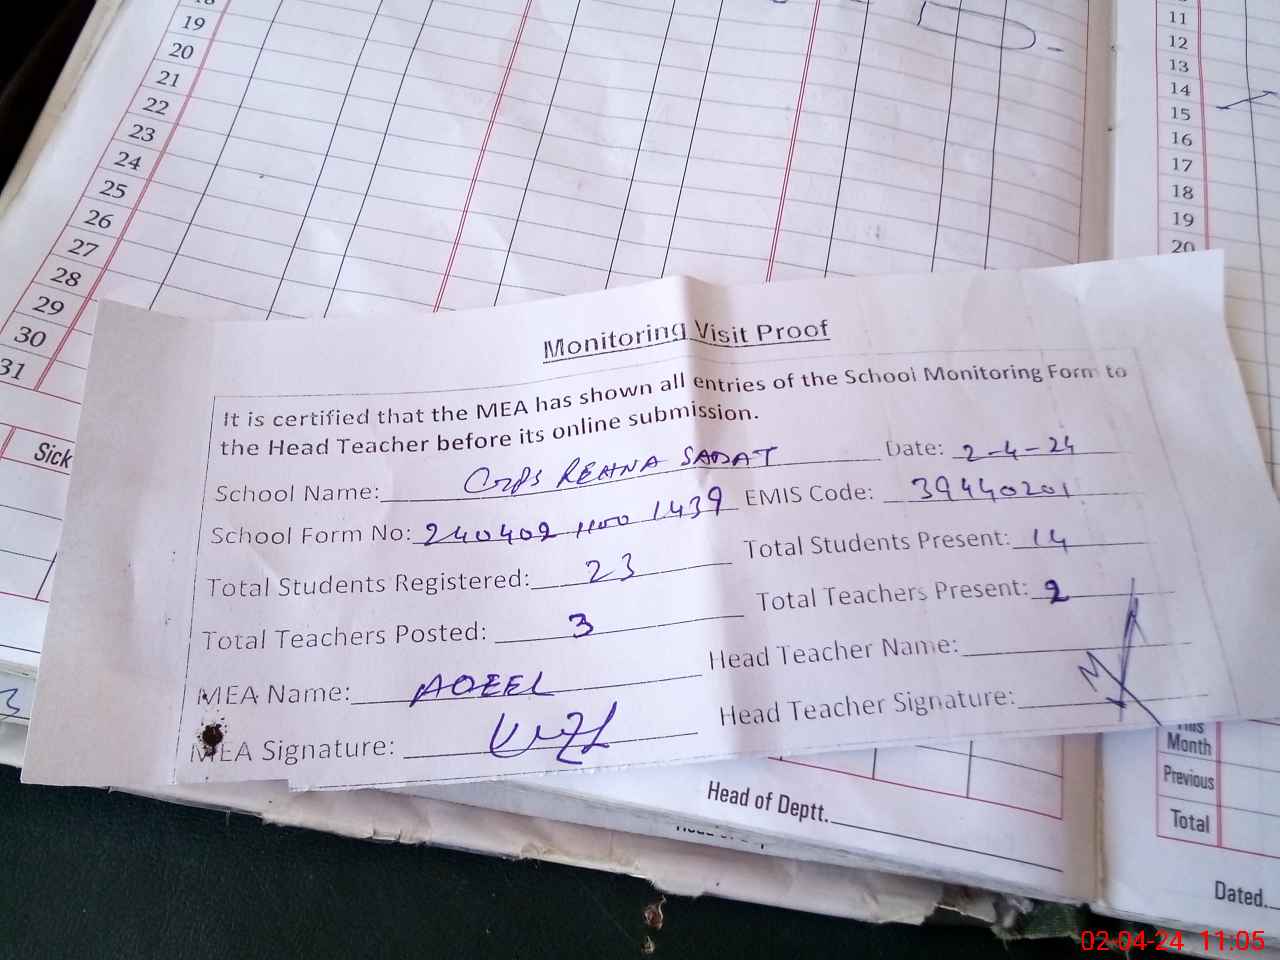 18
19
20
21
22
23
24
25
26
27
28
29
30
31
Sick
11
12
13
14
15
16
17
18
19
20
Monitoring Visit Proof
It is certified that the MEA has shown all entries of the School Monitoring Form to
the Head Teacher before its online submission.
School Name: GGPS REHNA SADAT Date: 2-4-24
School Form No: 240402 1100 1439 EMIS Code: 39440201
Total Students Registered: 23 Total Students Present: 14
Total Teachers Posted: 3 Total Teachers Present: 2
MEA Name: AQEEL Head Teacher Name:
MEA Signature: Head Teacher Signature:
This
Month
Previous
Total
Head of Deptt.
Dated.
02-04-24 11:05